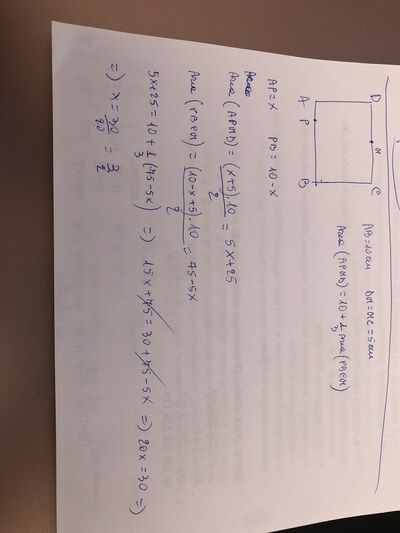 D M C
A P B
AB=10cm DM=MC=5cm
Aria (APMD) = 10 + 1/3 Aria (PBCM)
AP=X PB = 10-X
Aria (APMD) = (X+5).10/2 = 5X+25
Aria (PBCM) = (10-X+5).10/2 = 75-5X
5X+25 = 10+1/3(75-5X) => 15X+75 = 30+75-5X => 20X=30 =>
=> X=30/20 = 3/2